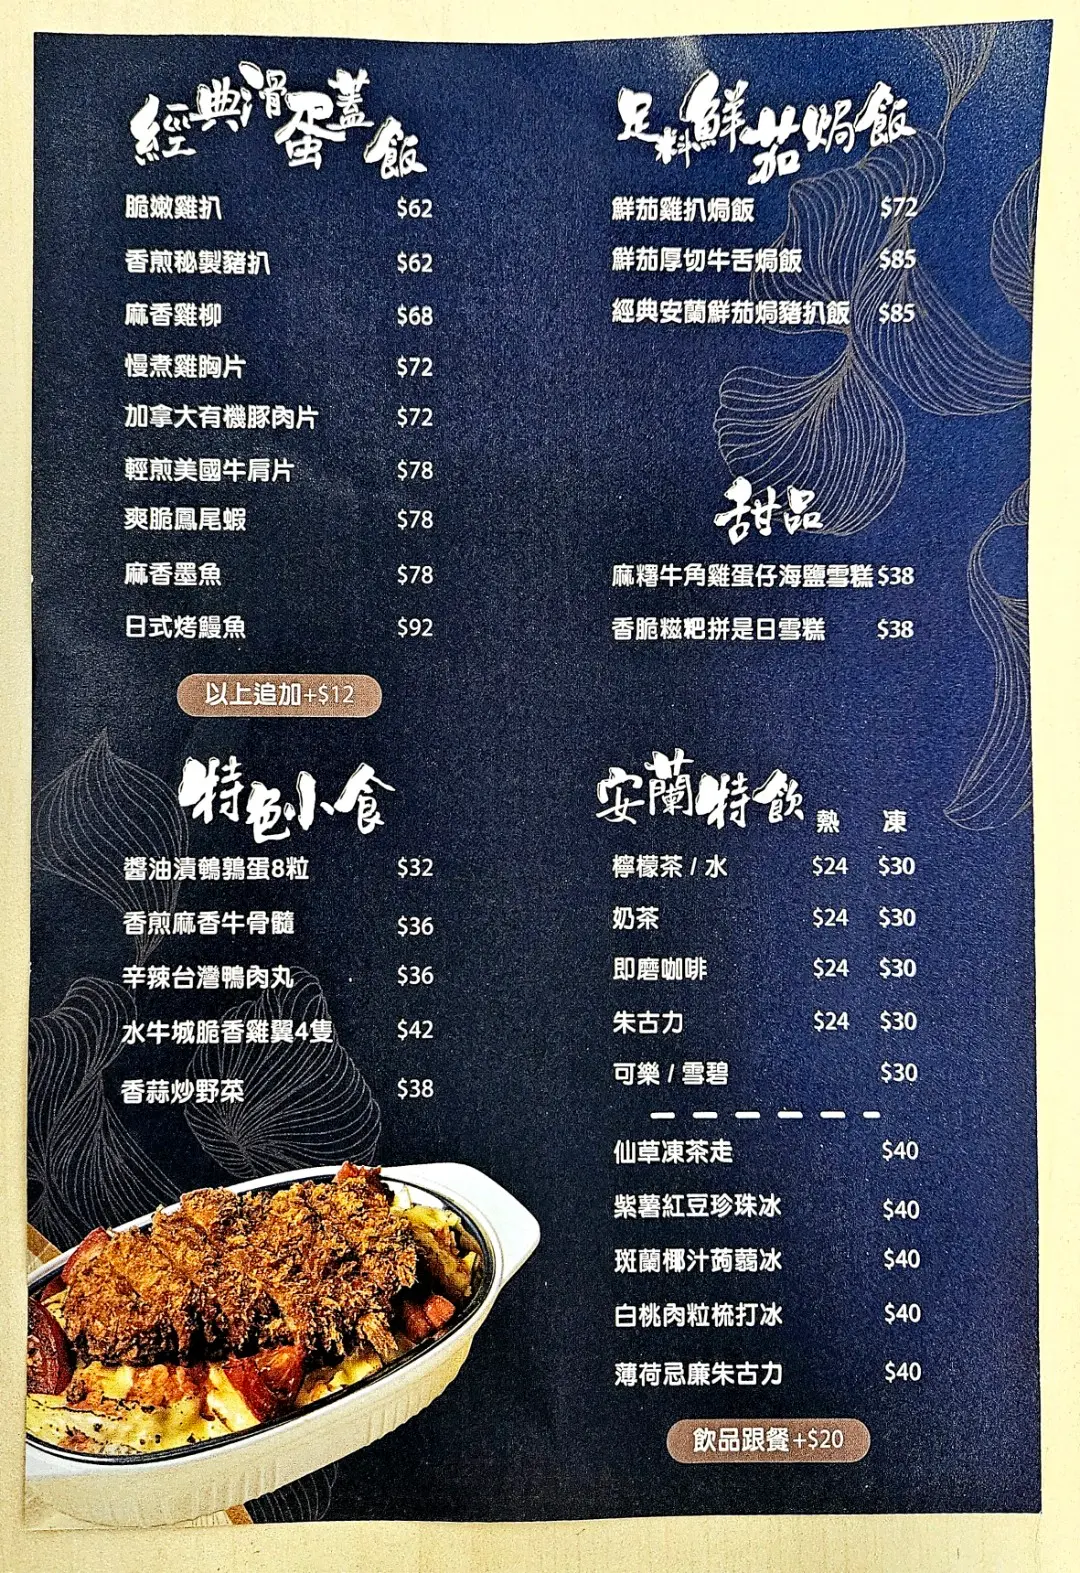 經典滑蛋蓋飯
脆嫩雞扒 $62
香煎秘製豬扒 $62
麻香雞柳 $68
慢煮雞胸片 $72
加拿大有機豚肉片 $72
輕煎美國牛肩片 $78
爽脆鳳尾蝦 $78
麻香墨魚 $78
日式烤鰻魚 $92
以上追加+$12
特色小食
醬油漬鵪鶉蛋8粒 $32
香煎麻香牛骨髓 $36
辛辣台灣鴨肉丸 $36
水牛城脆香雞翼4隻 $42
香蒜炒野菜 $38
足料鮮茄焗飯
鮮茄雞扒焗飯 $72
鮮茄厚切牛舌焗飯 $85
經典安蘭鮮茄焗豬扒飯 $85
甜品
麻糬牛角雞蛋仔海鹽雪糕 $38
香脆糍粑拼是日雪糕 $38
安蘭特飲 熱 凍
檸檬茶 / 水 $24 $30
奶茶 $24 $30
即磨咖啡 $24 $30
朱古力 $24 $30
可樂 / 雪碧 $30
仙草凍茶走 $40
紫薯紅豆珍珠冰 $40
斑蘭椰汁蒟蒻冰 $40
白桃肉粒梳打冰 $40
薄荷忌廉朱古力 $40
飲品跟餐+$20